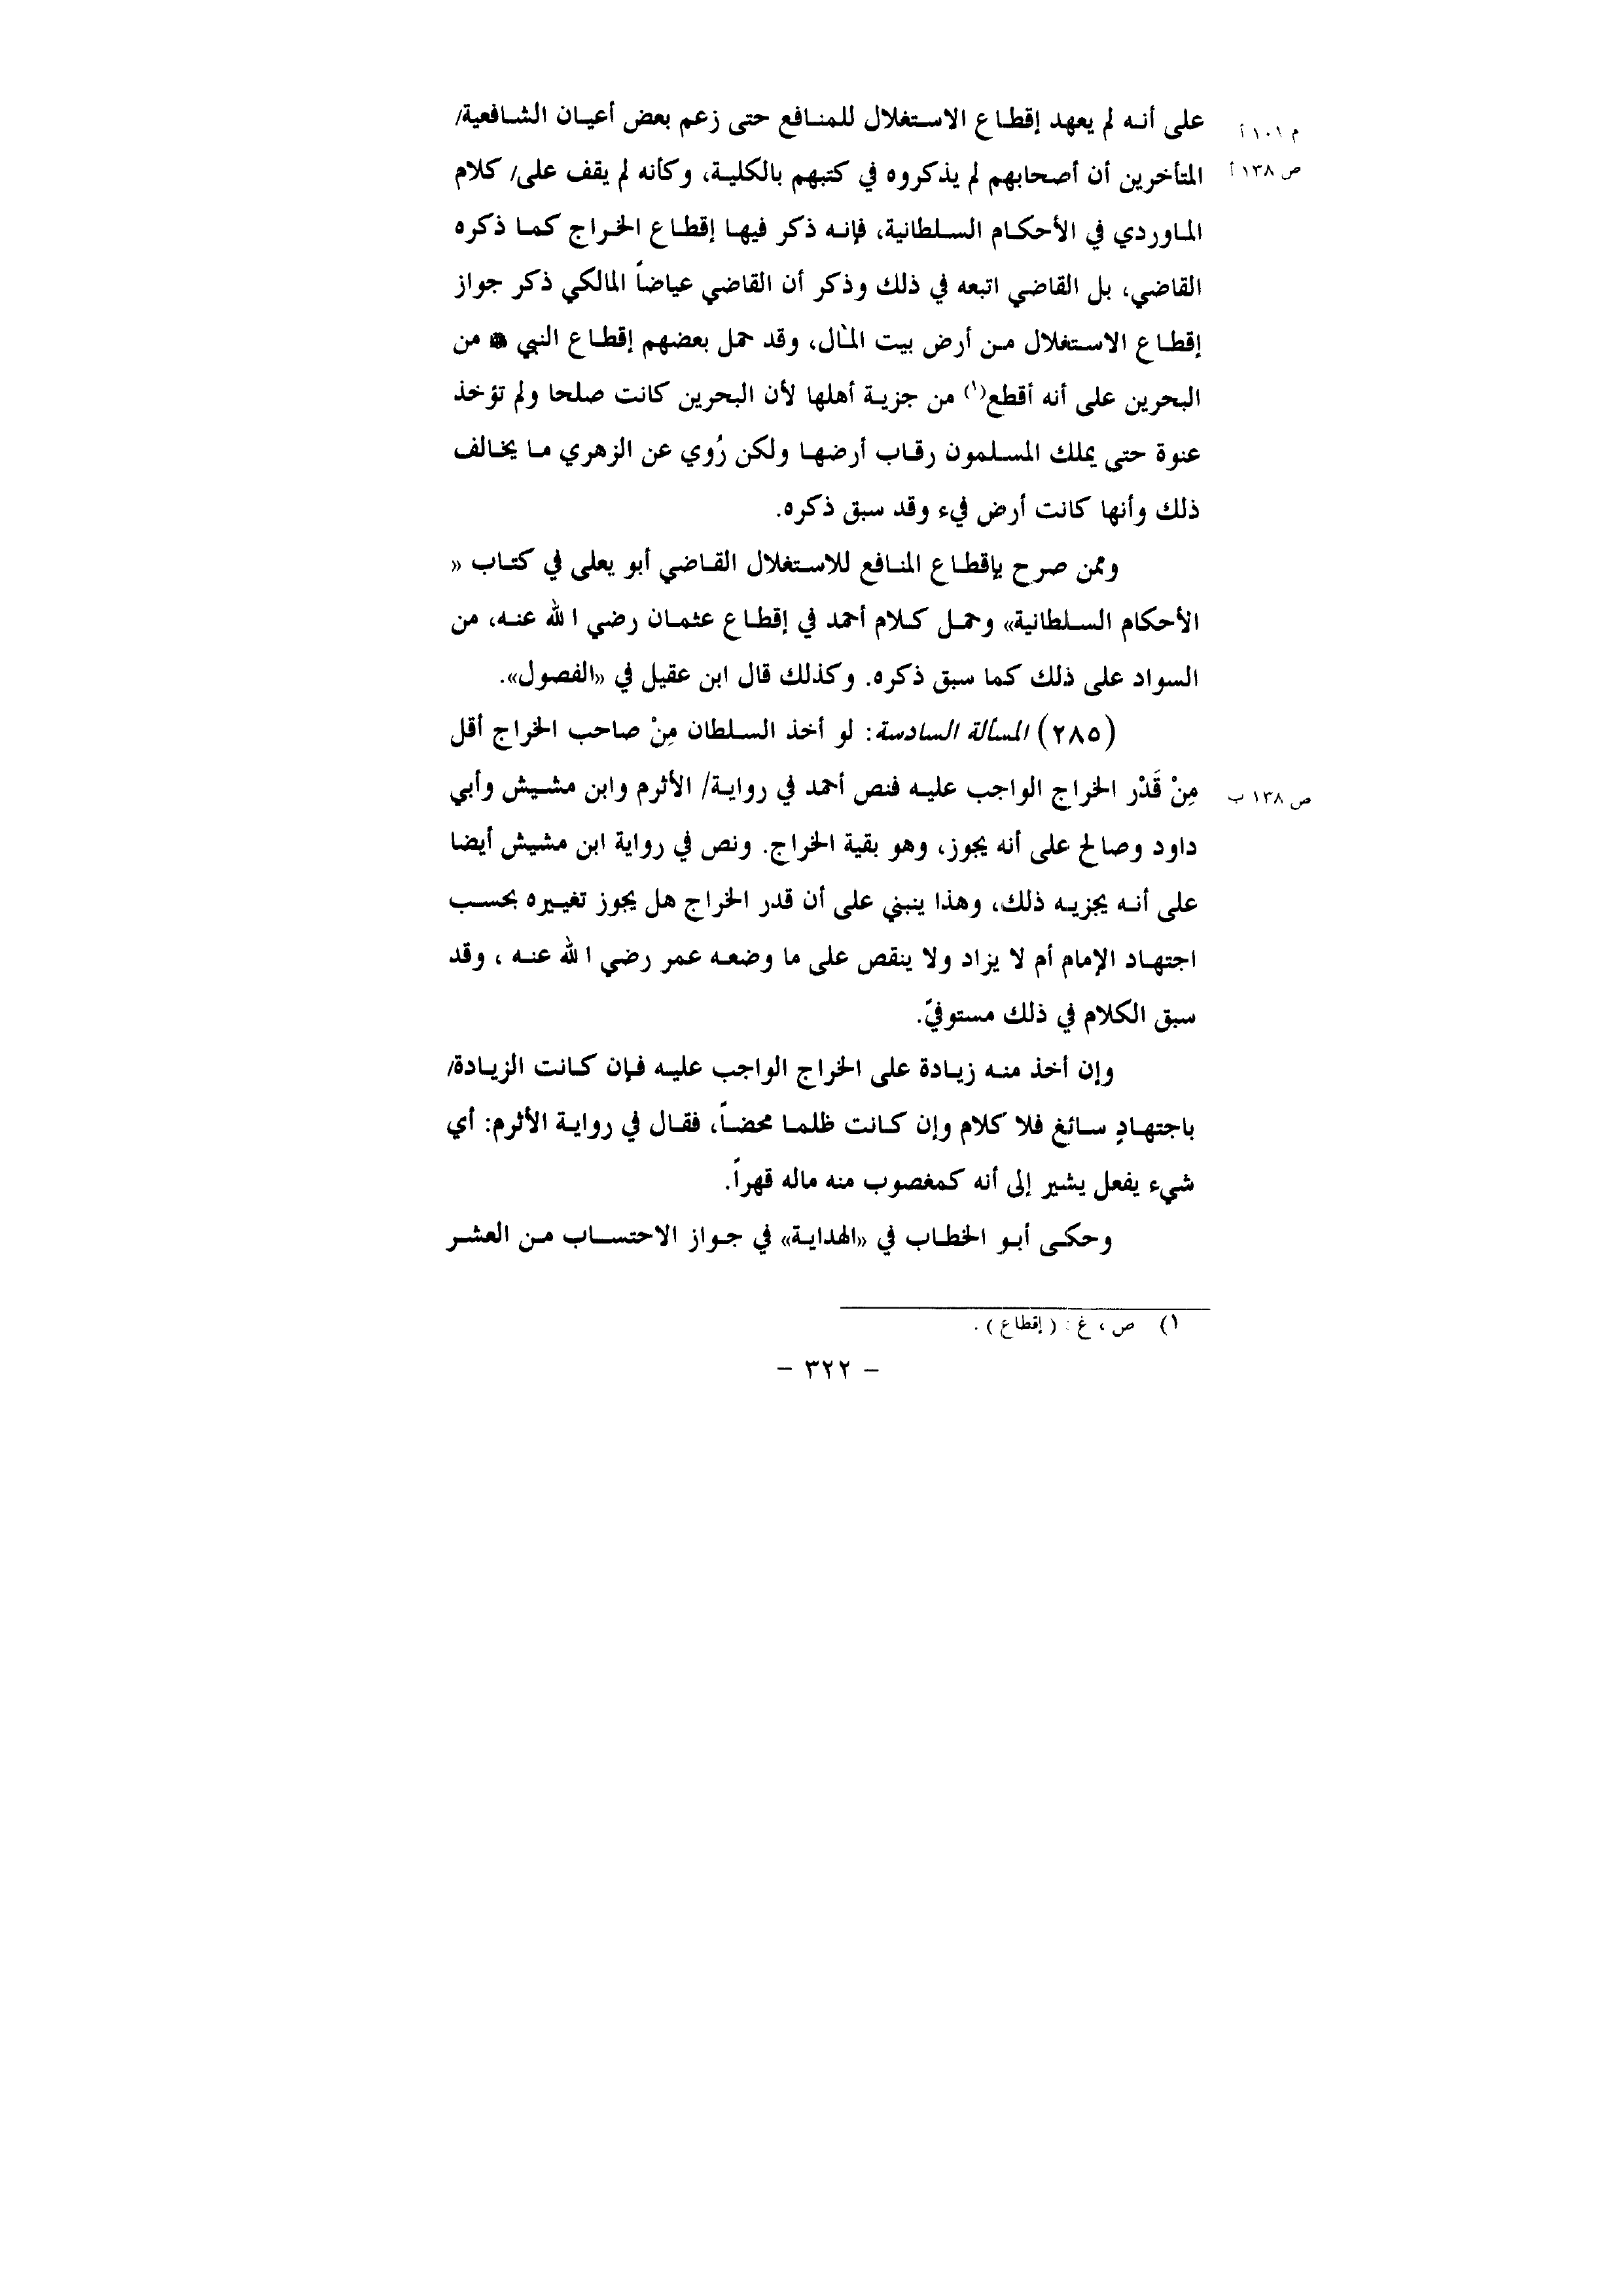 على أنه لم يعهد إقطاع الاستغلال للمنافع حتى زعم بعض أعيان الشافعية/
م ١٠١ أ
المتأخرين أن أصحابهم لم يذكروه في كتبهم بالكلية، وكأنه لم يقف على/ كلام
ص ١٣٨ أ
الماوردي في الأحكام السلطانية، فإنه ذكر فيها إقطاع الخراج كما ذكره
القاضي، بل القاضي اتبعه في ذلك وذكر أن القاضي عياضاً المالكي ذكر جواز
إقطاع الاستغلال من أرض بيت المال، وقد حمل بعضهم إقطاع النبي ﷺ من
البحرين على أنه أقطع(١) من جزية أهلها لأن البحرين كانت صلحا ولم تؤخذ
عنوة حتى يملك المسلمون رقاب أرضها ولكن رُوي عن الزهري ما يخالف
ذلك وأنها كانت أرض فيء وقد سبق ذكره.
وممن صرح بإقطاع المنافع للاستغلال القاضي أبو يعلى في كتاب «
الأحكام السلطانية» وحمل كلام أحمد في إقطاع عثمان رضي الله عنه، من
السواد على ذلك كما سبق ذكره. وكذلك قال ابن عقيل في «الفصول».
(٢٨٥) المسألة السادسة: لو أخذ السلطان مِنْ صاحب الخراج أقل
مِنْ قَدْر الخراج الواجب عليه فنص أحمد في رواية/ الأثرم وابن مشيش وأبي
ص ١٣٨ ب
داود وصالح على أنه يجوز، وهو بقية الخراج. ونص في رواية ابن مشيش أيضا
على أنه يجزيه ذلك، وهذا ينبني على أن قدر الخراج هل يجوز تغييره بحسب
اجتهاد الإمام أم لا يزاد ولا ينقص على ما وضعه عمر رضي الله عنه ، وقد
سبق الكلام في ذلك مستوفيً.
وإن أخذ منه زيادة على الخراج الواجب عليه فإن كانت الزيادة/
باجتهادٍ سائغ فلا كلام وإن كانت ظلما محضاً، فقال في رواية الأثرم: أي
شيء يفعل يشير إلى أنه كمغصوب منه ماله قهراً.
وحكى أبو الخطاب في «الهداية» في جواز الاحتساب من العشر
١) ص ، غ : ( إقطاع ) .
- ٣٢٢ -